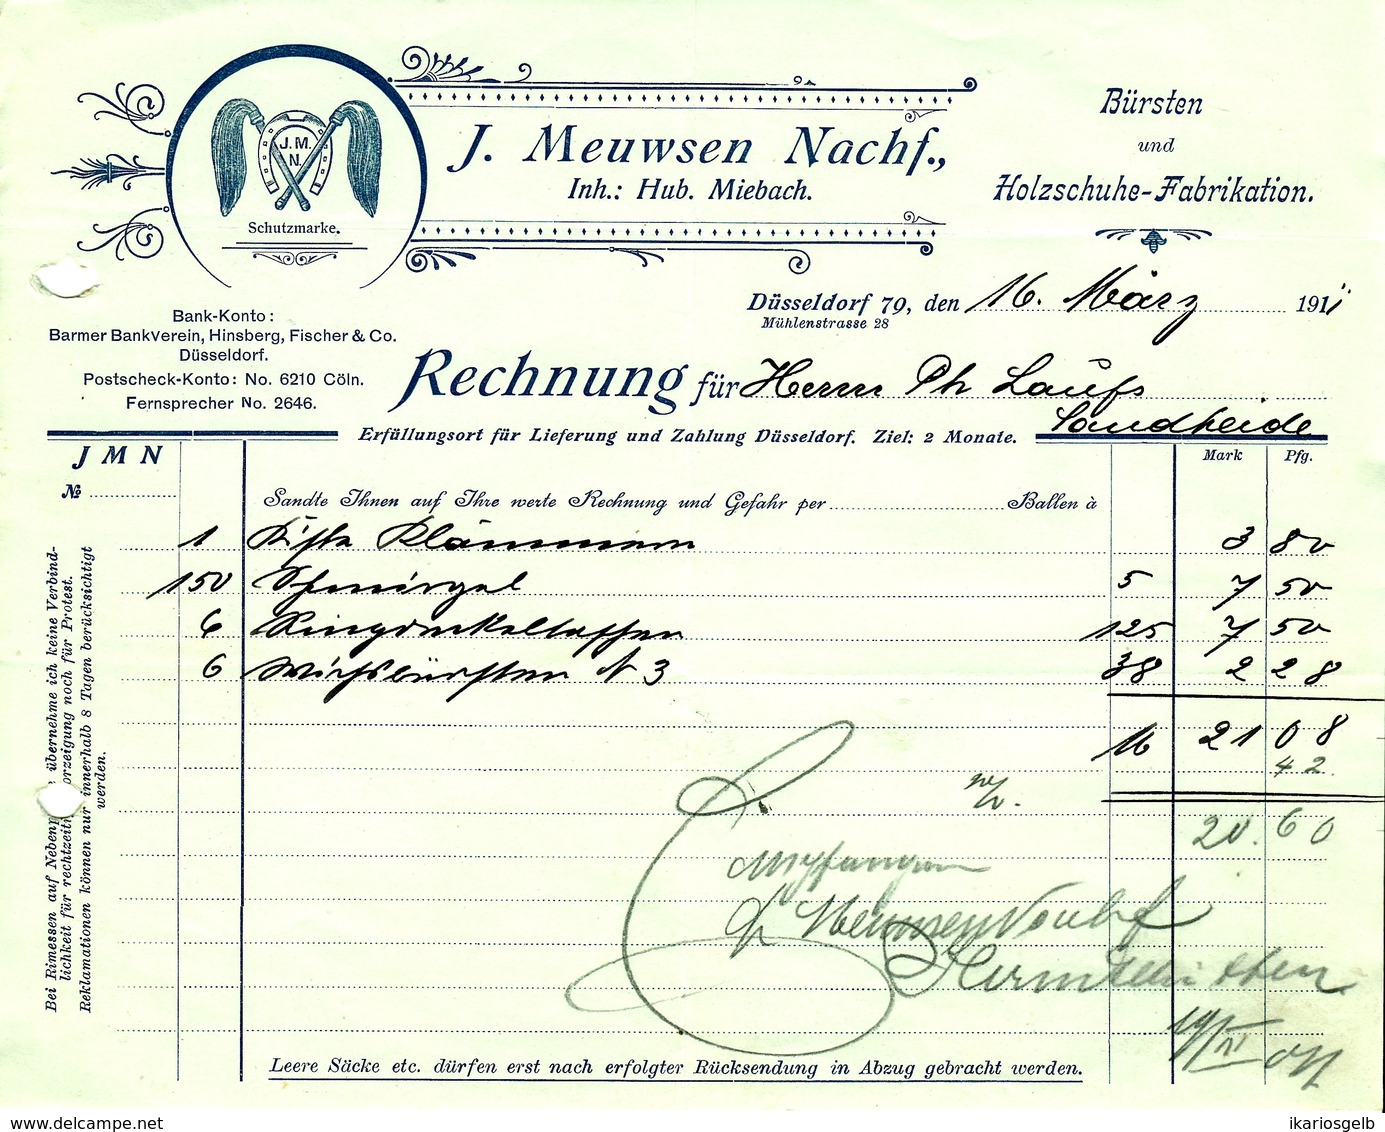 J. M.
N.
Schutzmarke.
J. Meuwsen Nachf.,
Inh.: Hub. Miebach.
Bürsten
und
Holzschuhe-Fabrikation.
Bank-Konto:
Barmer Bankverein, Hinsberg, Fischer & Co.
Düsseldorf.
Postscheck-Konto: No. 6210 Cöln.
Fernsprecher No. 2646.
Düsseldorf 79, den 16. März 1911
Mühlenstrasse 28
Rechnung für Herrn Ph Laufs
Sandheide
Erfüllungsort für Lieferung und Zahlung Düsseldorf. Ziel: 2 Monate.
J M N
№
Mark Pfg.
Sandte Ihnen auf Ihre werte Rechnung und Gefahr per Ballen à
1 Kiste Klammern 3 80
150 Schmirgel 5 7 50
6 125 7 50
6 Wichsbürsten N 3 38 2 28
M 21 08
42
20.60
Empfangen
Meuwsen Nachf
Bei Rimessen auf Nebenp übernehme ich keine Verbind-
lichkeit für rechtzeiti orzeigung noch für Protest.
Reklamationen können nur innerhalb 8 Tagen berücksichtigt
werden.
Leere Säcke etc. dürfen erst nach erfolgter Rücksendung in Abzug gebracht werden.
www.delcampe.net
ikariosgelb